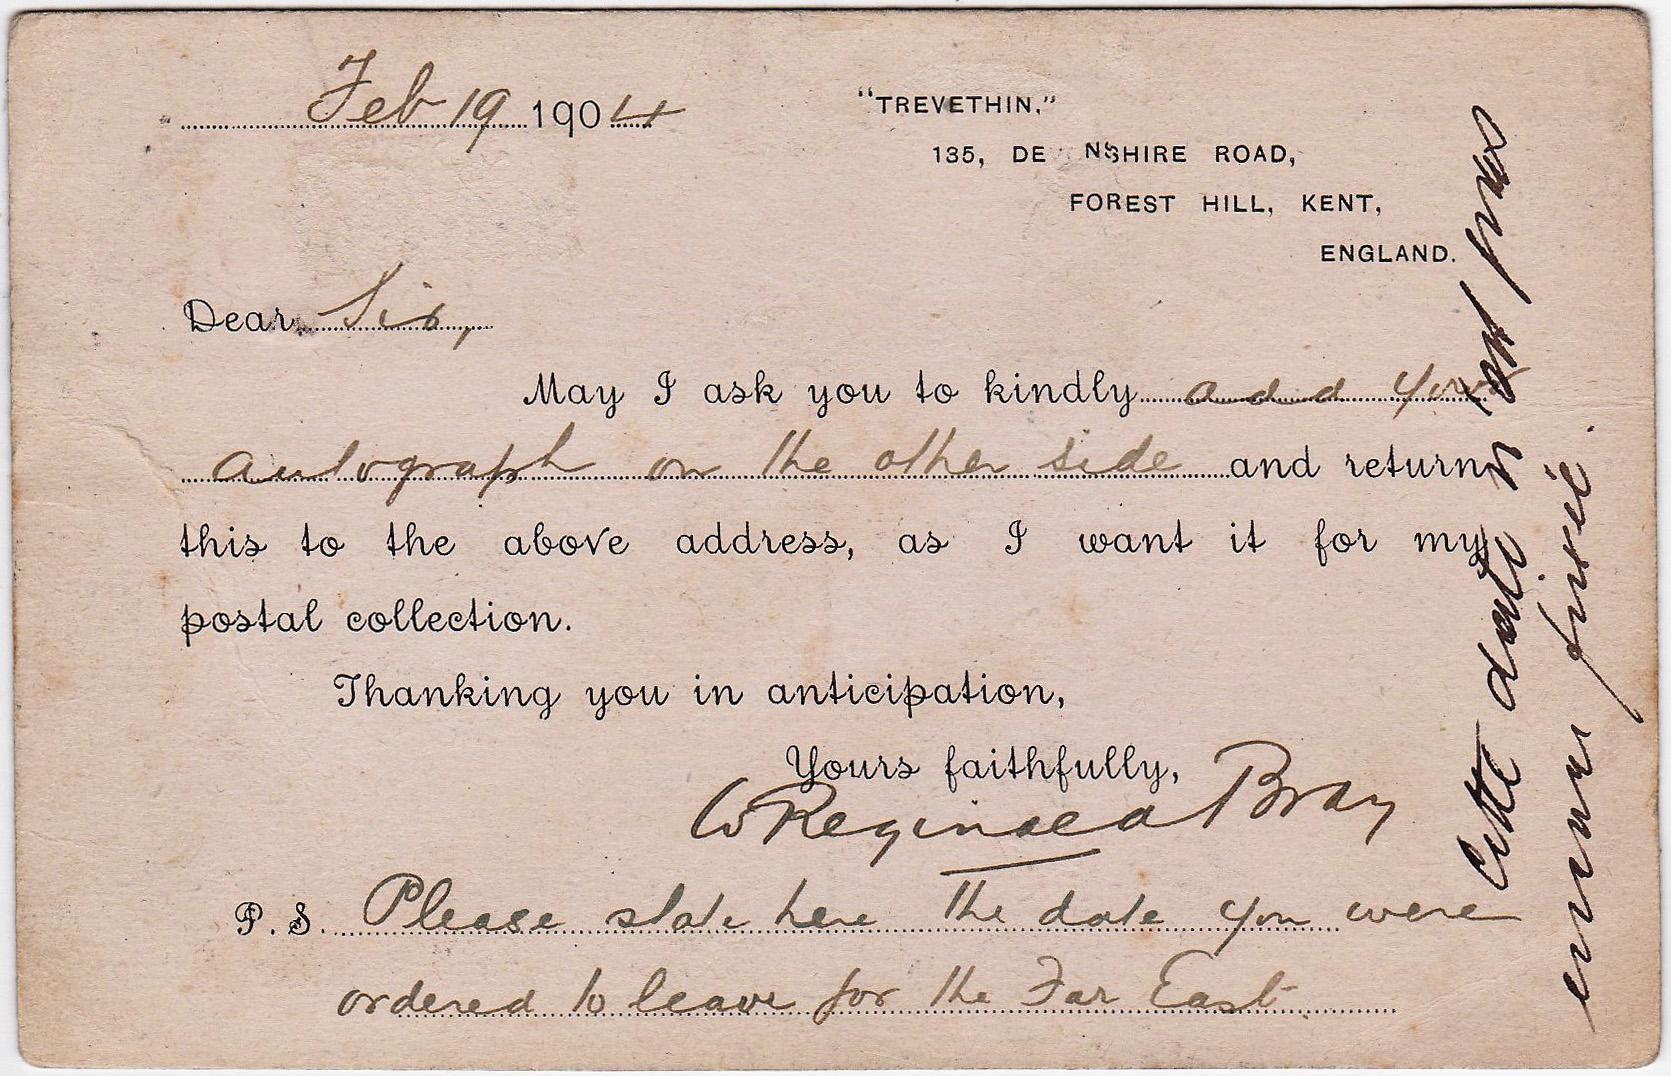 Feb 19 1904
"TREVETHIN,"
135, DE NSHIRE ROAD,
FOREST HILL, KENT,
ENGLAND.
Dear Sir,
May I ask you to kindly add your
autograph on the other side and return
this to the above address, as I want it for my
postal collection.
Thanking you in anticipation,
Yours faithfully,
W Reginald Bray
P.S. Please state here the date you were
ordered to leave for the Far East
Cette date n'est pas
encore fixée.